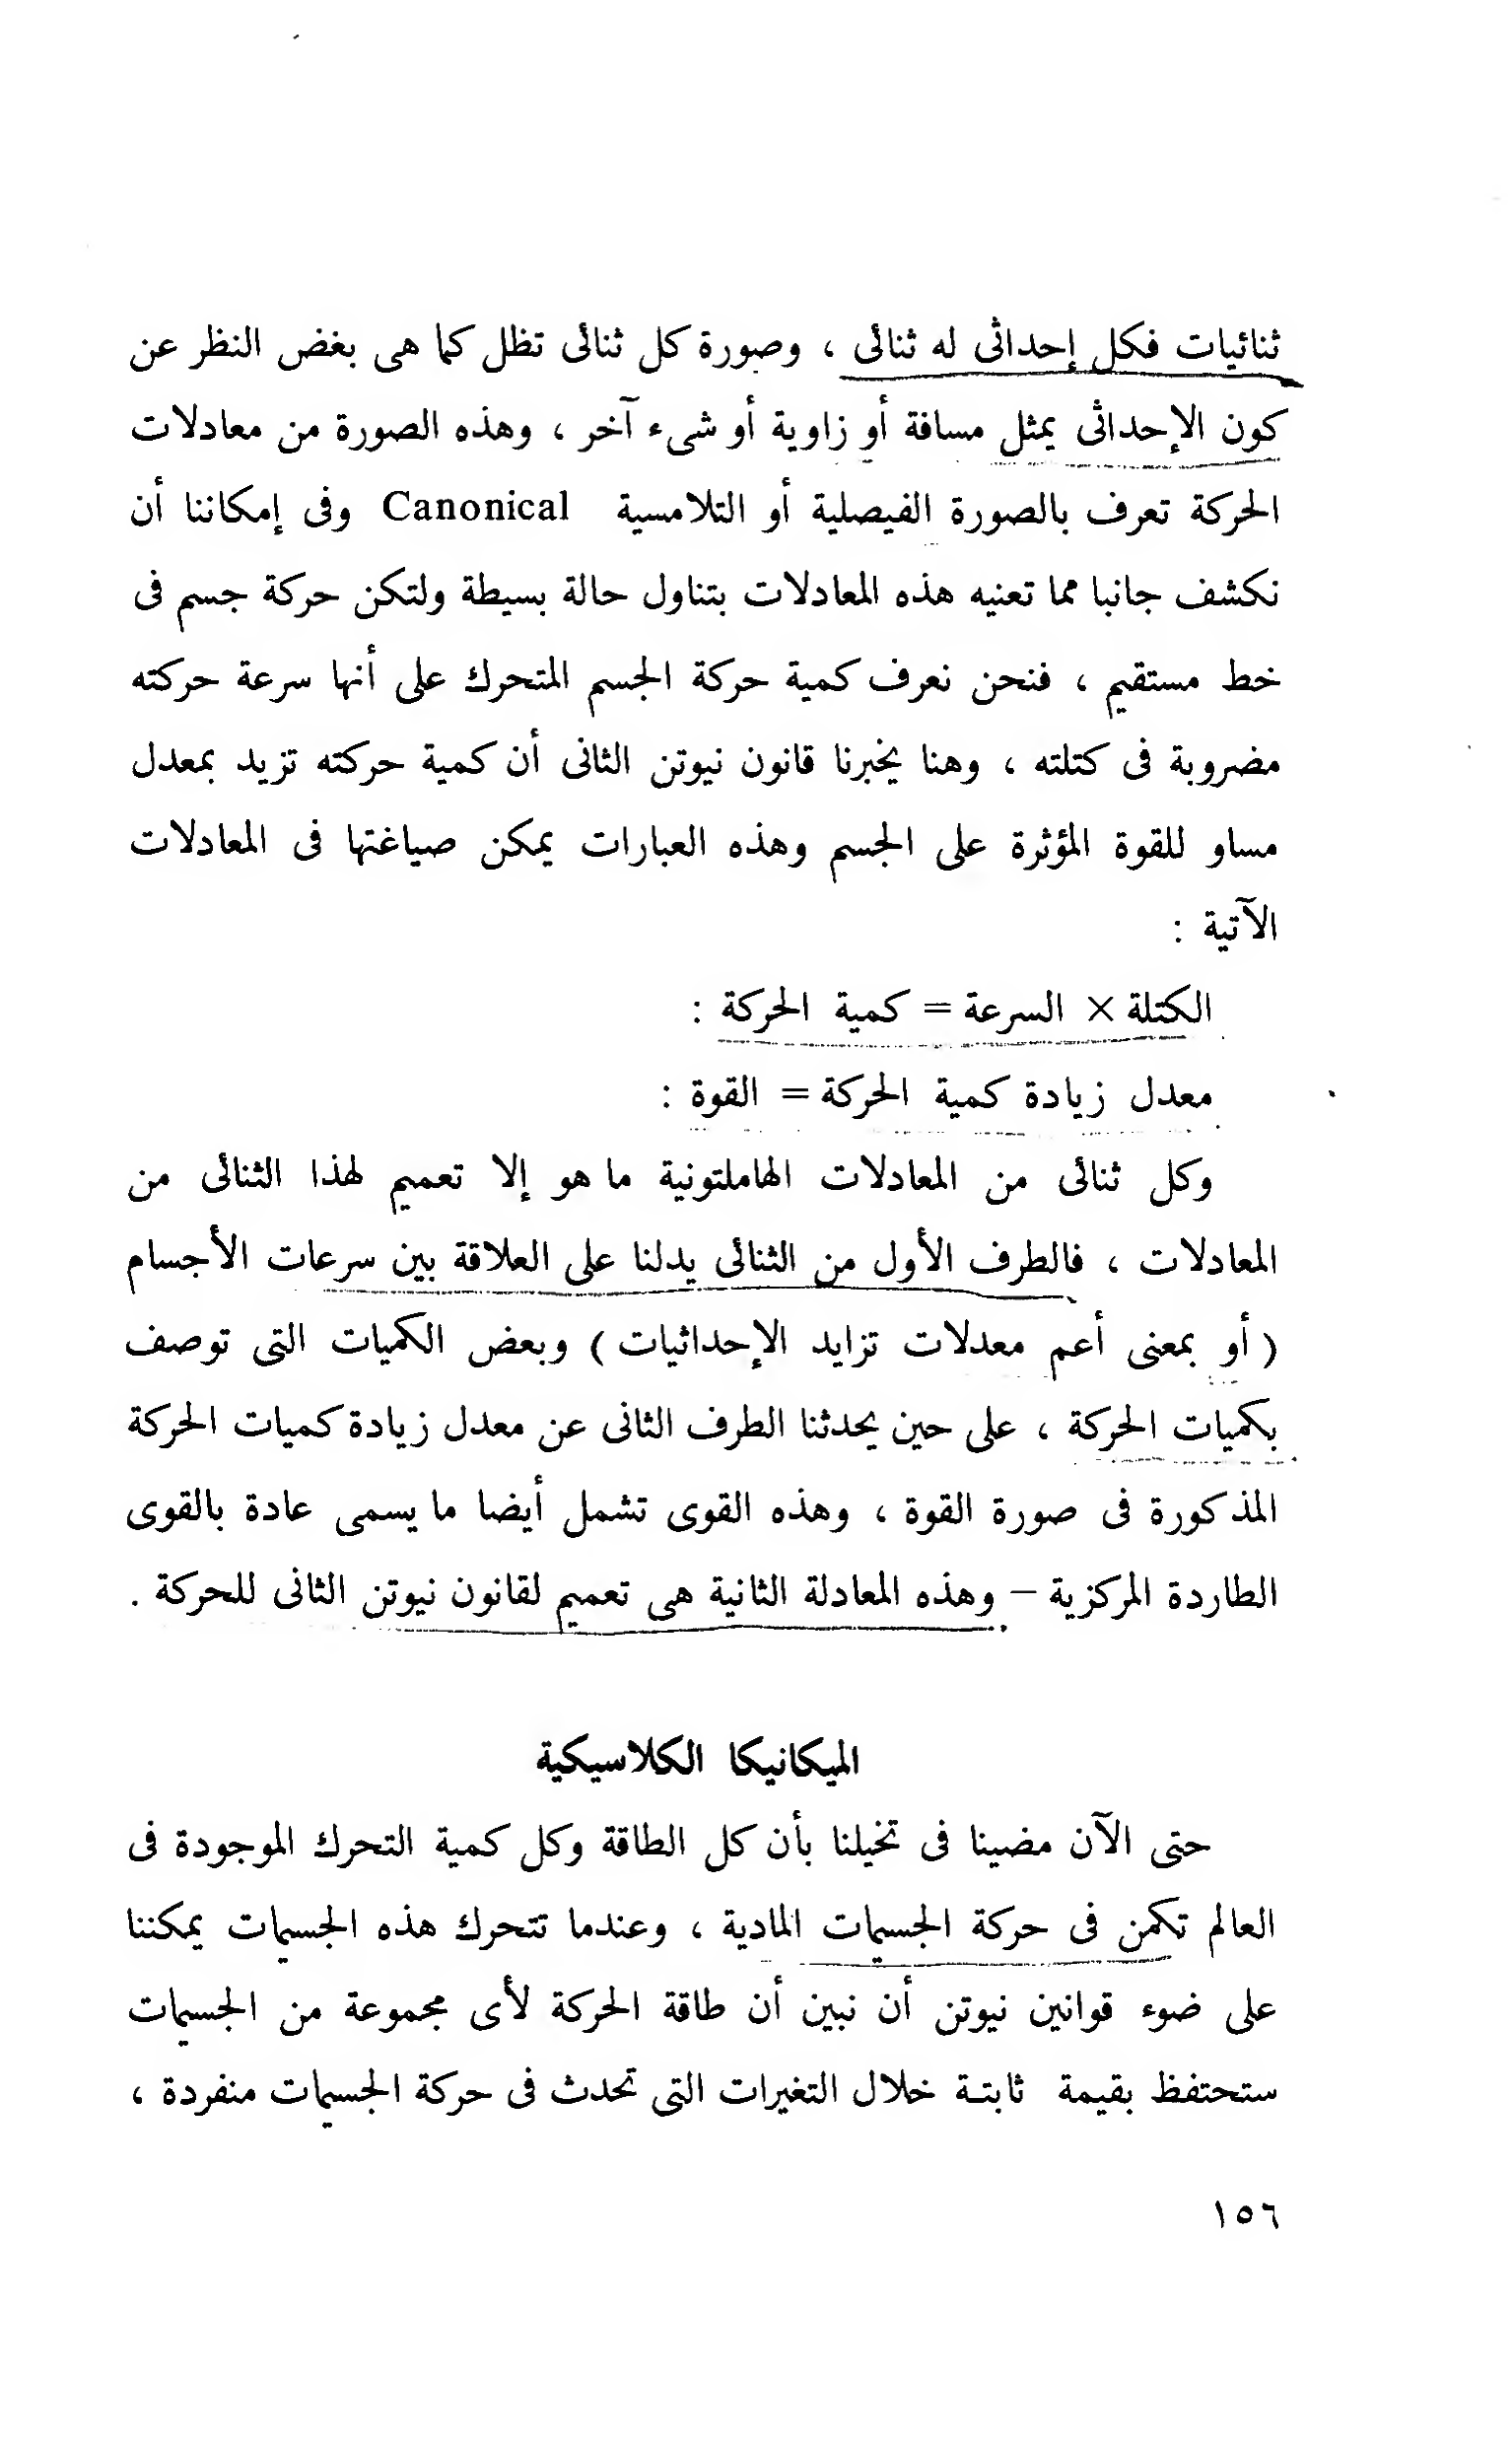 ثنائيات فكل إحداثى له ثنائى ، وصورة كل ثنائى تظل كما هى بغض النظر عن
كون الإحداثى يمثل مسافة أو زاوية أو شىء آخر ، وهذه الصورة من معادلات
الحركة تعرف بالصورة الفيصلية أو التلامسية Canonical وفى إمكاننا أن
نكشف جانبا مما تعنيه هذه المعادلات بتناول حالة بسيطة ولتكن حركة جسم فى
خط مستقيم ، فنحن نعرف كمية حركة الجسم المتحرك على أنها سرعة حركته
مضروبة فى كتلته ، وهنا يخبرنا قانون نيوتن الثانى أن كمية حركته تزيد بمعدل
مساو للقوة المؤثرة على الجسم وهذه العبارات يمكن صياغتها فى المعادلات
الآتية :
الكتلة × السرعة = كمية الحركة :
معدل زيادة كمية الحركة = القوة :
وكل ثنائى من المعادلات الهاملتونية ما هو إلا تعميم لهذا الثنائى من
المعادلات ، فالطرف الأول من الثنائى يدلنا على العلاقة بين سرعات الأجسام
( أو بمعنى أعم معدلات تزايد الإحداثيات ) وبعض الكميات التى توصف
بكميات الحركة ، على حين يحدثنا الطرف الثانى عن معدل زيادة كميات الحركة
المذكورة فى صورة القوة ، وهذه القوى تشمل أيضا ما يسمى عادة بالقوى
الطاردة المركزية – وهذه المعادلة الثانية هى تعميم لقانون نيوتن الثانى للحركة .
الميكانيكا الكلاسيكية
حتى الآن مضينا فى تخيلنا بأن كل الطاقة وكل كمية التحرك الموجودة فى
العالم تكمن فى حركة الجسيمات المادية ، وعندما تتحرك هذه الجسيمات يمكننا
على ضوء قوانين نيوتن أن نبين أن طاقة الحركة لأى مجموعة من الجسيمات
ستحتفظ بقيمة ثابتة خلال التغيرات التى تحدث فى حركة الجسيمات منفردة ،
١٥٦